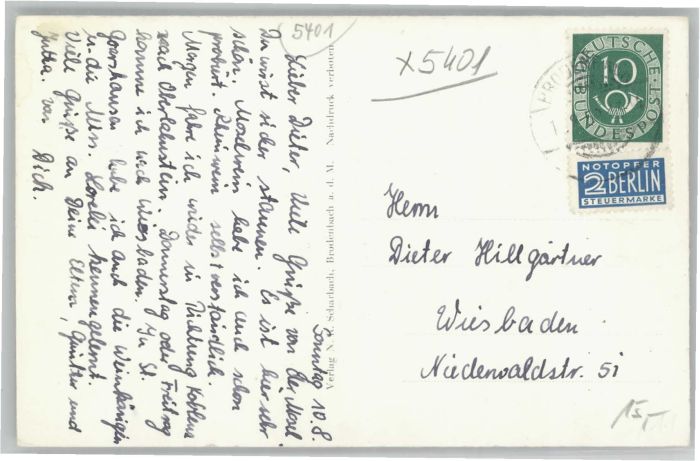 5401
x5401
DEUTSCHE
BUNDESPOST
10
NOTOPFER
2 BERLIN
STEUERMARKE
Sonntag 10.8.
Lieber Dieter, Viele Grüße von der Mosel.
Du wirst sicher staunen. Es ist hier sehr
schön. Moselwein habe ich auch schon
probiert. Rheinwein selbstverständlich.
Morgen fahre ich wieder in Richtung Koblenz
nach Oberlahnstein. Donnerstag oder Freitag
komme ich nach Wiesbaden. In St.
Goarshausen habe ich auch die Weinkönigin
u. die Miss. Lorelei kennengelernt.
Viele Grüße an Deine Eltern, Günther und
Jutta. von Dich.
Verlag N. W. Scharbach, Brodenbach a. d. M. Nachdruck verboten
Herrn
Dieter Hillgärtner
Wiesbaden
Niederwaldstr. 5i
15,-